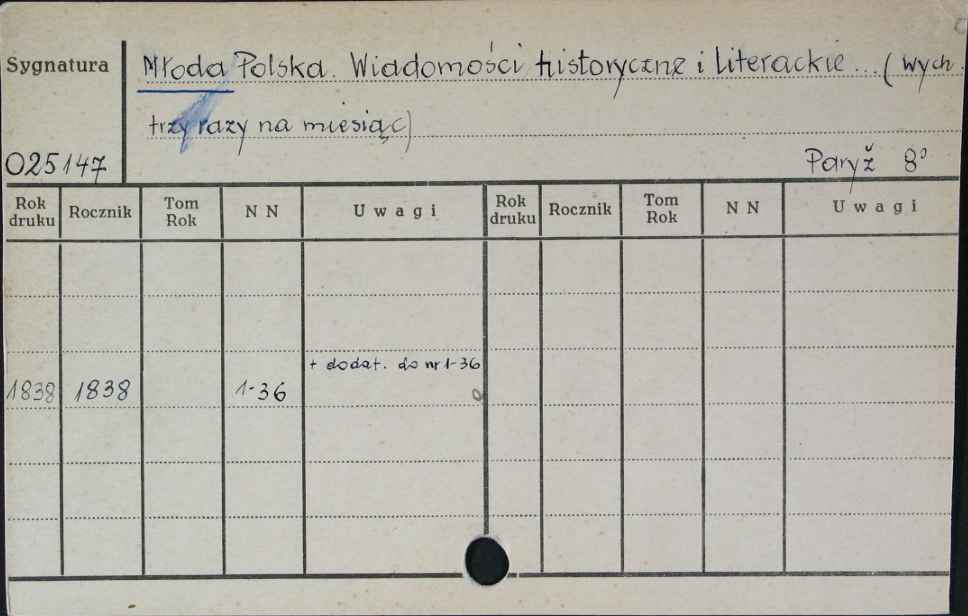 Sygnatura
Młoda Polska. Wiadomości historyczne i literackie... (wych.
trzy razy na miesiąc)
025147
Paryż 8°
Rok druku Rocznik Tom Rok N N Uwagi Rok druku Rocznik Tom Rok N N Uwagi
+ dodat. do nr 1-36
1838 1838 1-36